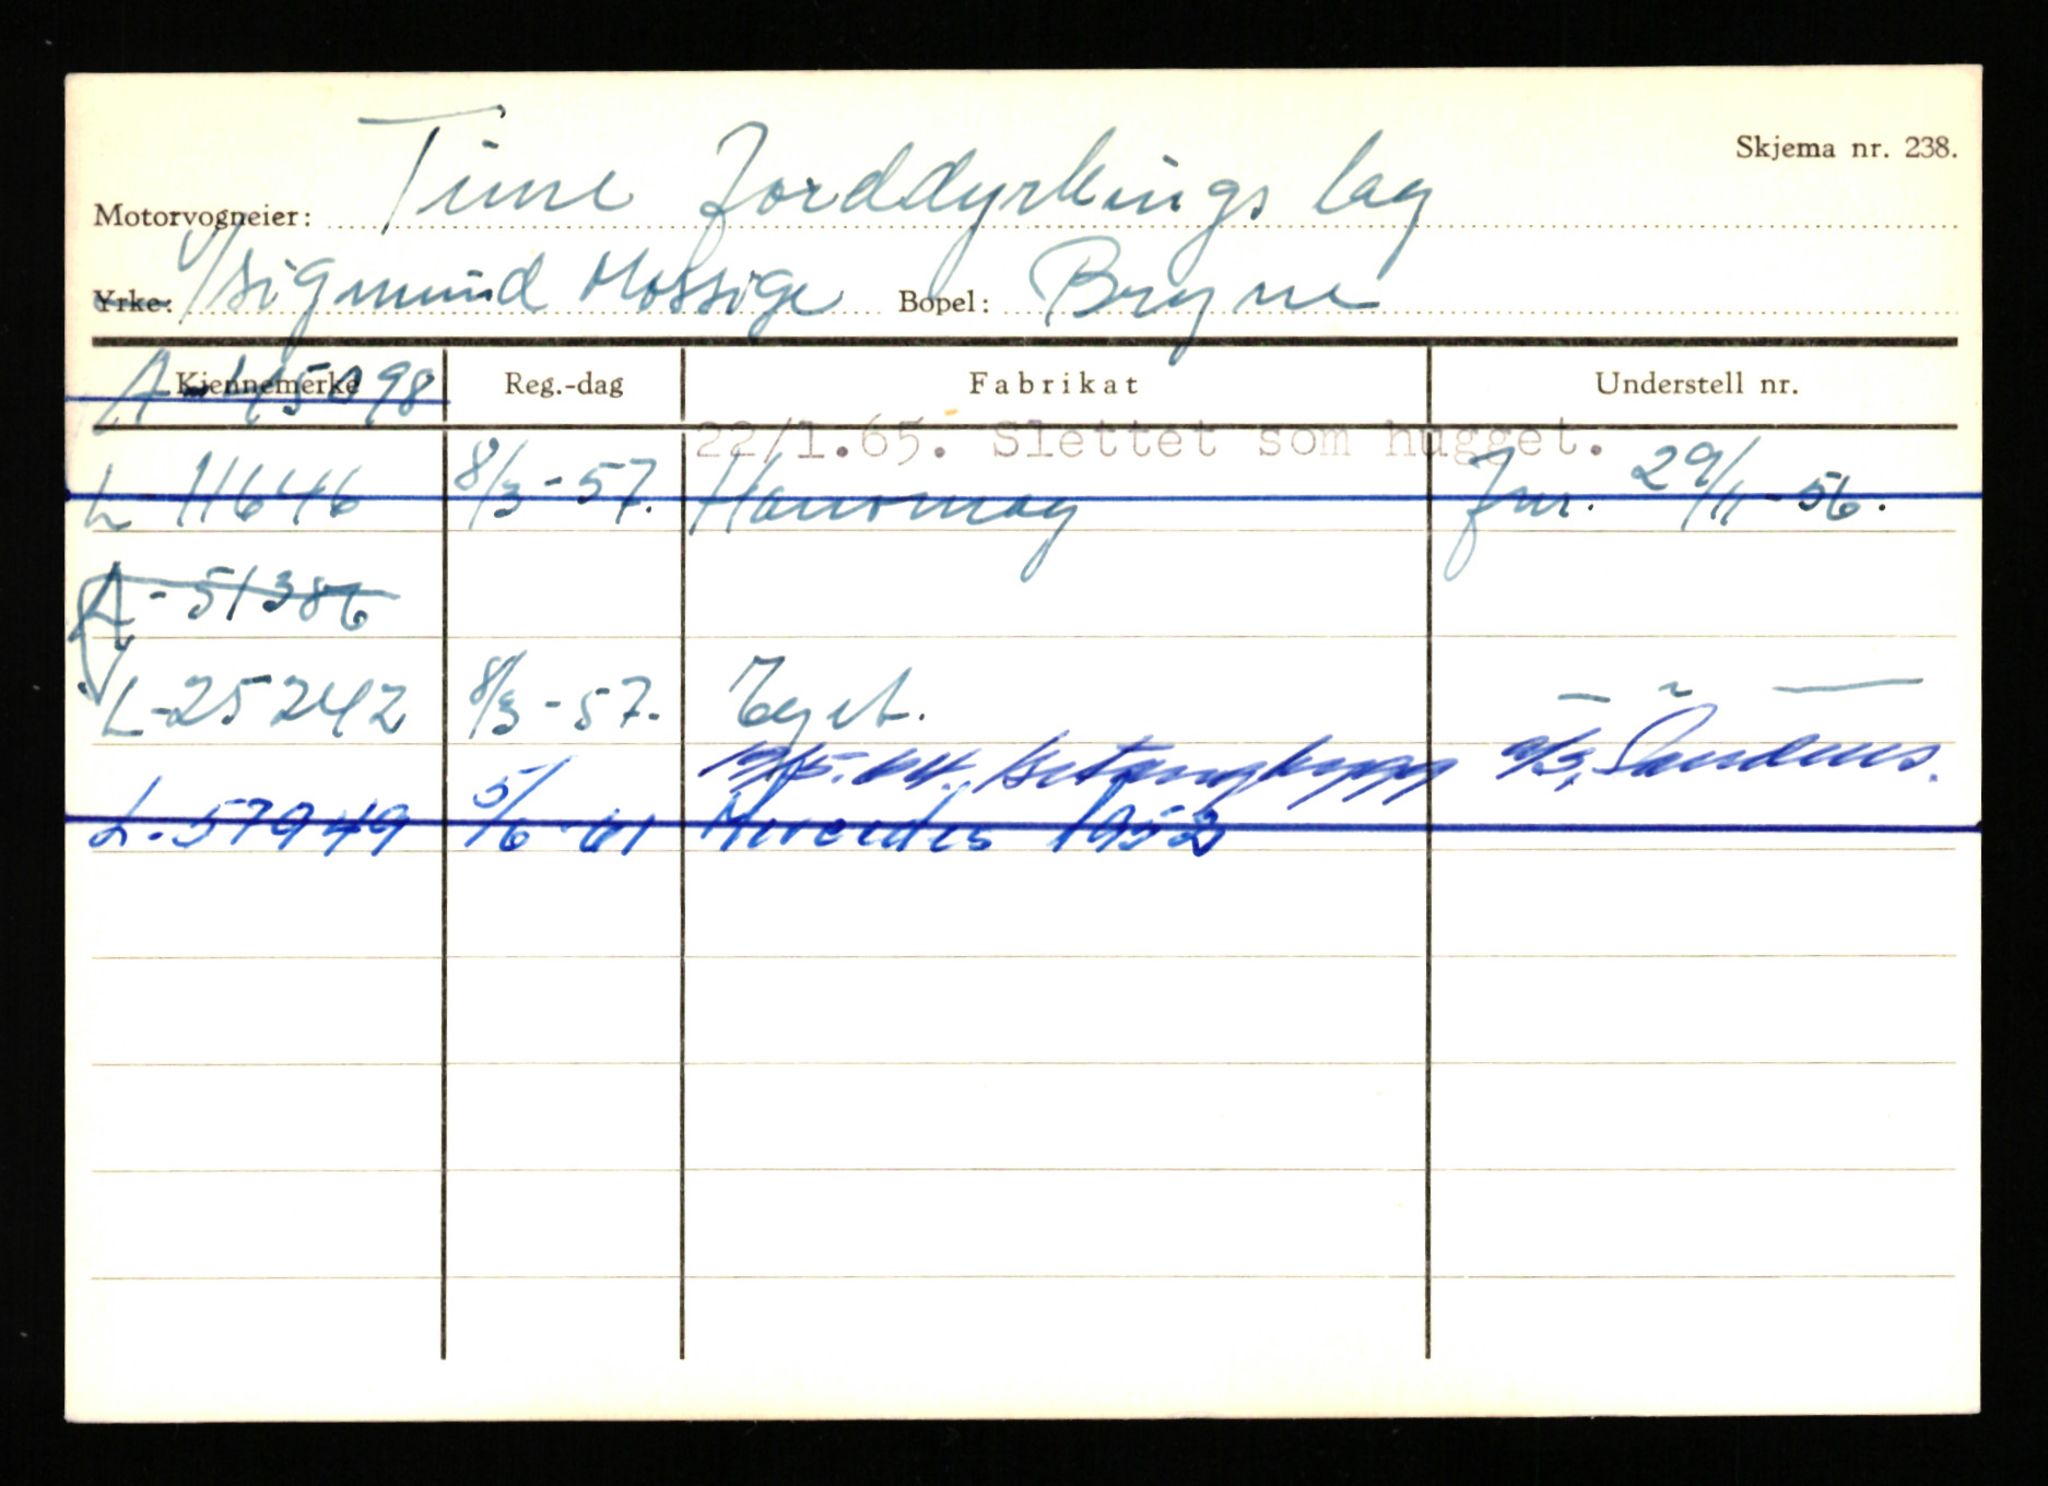 Skjema nr. 238.
Motorvogneier: Time Jorddyrkings lag
Yrke: v/Sigmund Mossige Bopel: Bryne
Kjennemerke Reg.-dag Fabrikat Understell nr.
A-45098
22/1.65. Slettet som hugget.
L 11646 8/3-57. Hanomag Jnr. 29/11-56.
A-51386
L-25242 8/3-57. Eget. — " —
L-57949 5/6-61 Mercedes 1952